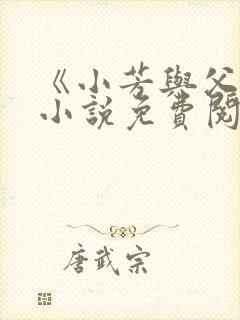 《小芳與父
小說免費閱
唐武宗